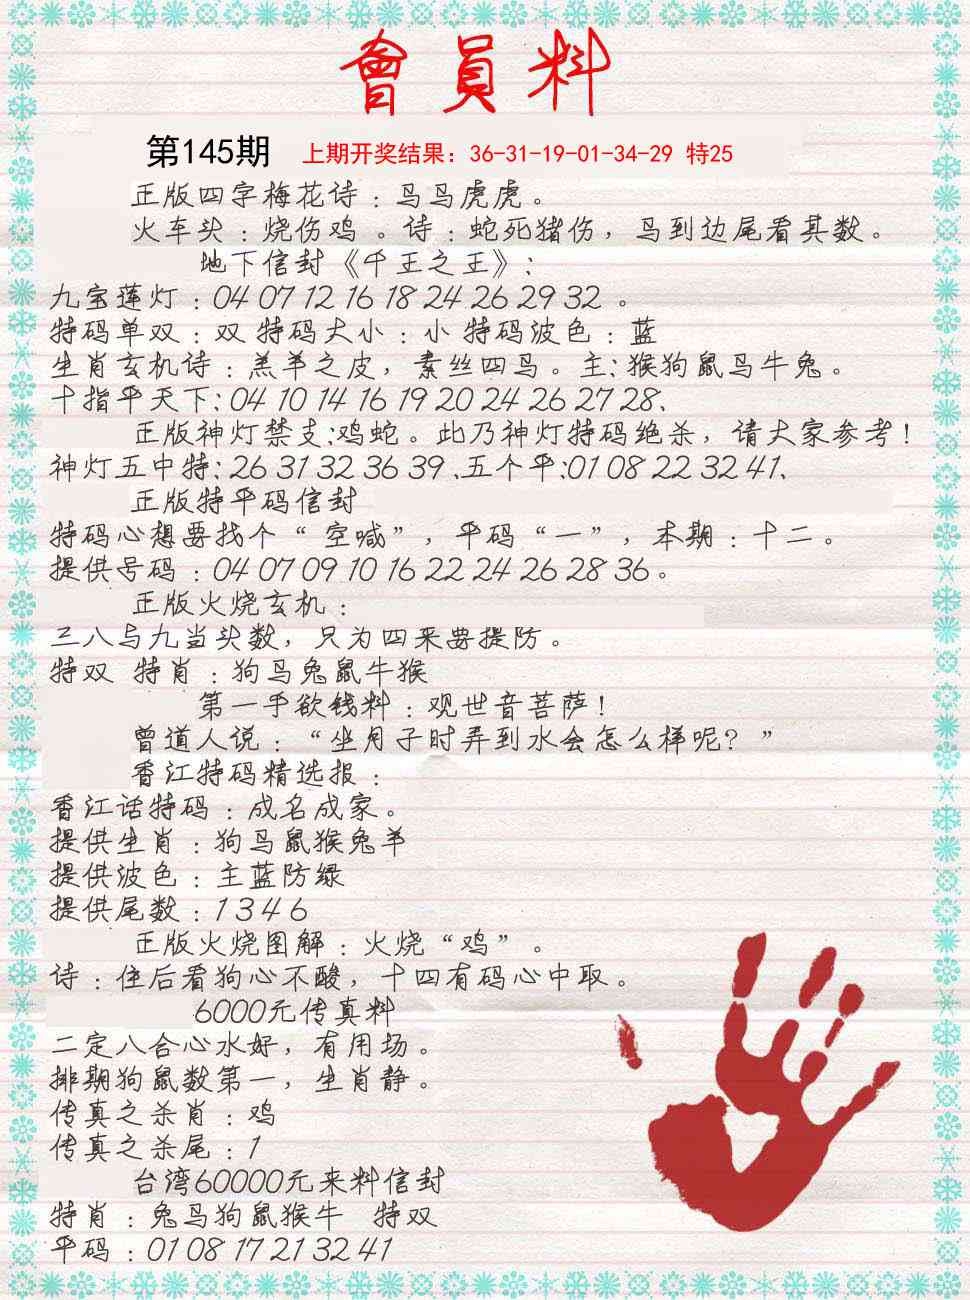 會員料
第145期 上期开奖结果：36-31-19-01-34-29 特25
正版四字梅花诗：马马虎虎。
火车头：烧伤鸡 。诗：蛇死猪伤，马到边尾看其数。
地下信封《千王之王》：
九宝莲灯：04 07 12 16 18 24 26 29 32 。
特码单双：双 特码大小：小 特码波色：蓝
生肖玄机诗：羔羊之皮，素丝四马。主：猴狗鼠马牛兔。
十指平天下：04 10 14 16 19 20 24 26 27 28、
正版神灯禁支：鸡蛇。此乃神灯特码绝杀，请大家参考！
神灯五中特：26 31 32 36 39 、五个平：01 08 22 32 41、
正版特平码信封
特码心想要找个“ 空喊”，平码“一”，本期：十二。
提供号码：04 07 09 10 16 22 24 26 28 36。
正版火烧玄机：
三八与九当头数，只为四来要提防。
特双 特肖：狗马兔鼠牛猴
第一手欲钱料：观世音菩萨！
曾道人说：“坐月子时弄到水会怎么样呢？”
香江特码精选报：
香江话特码：成名成家。
提供生肖：狗马鼠猴兔羊
提供波色：主蓝防绿
提供尾数：1 3 4 6
正版火烧图解：火烧“鸡”。
诗：住后看狗心不酸，十四有码心中取。
6000元传真料
二定八合心水好，有用场。
排期狗鼠数第一，生肖静。
传真之杀肖：鸡
传真之杀尾：1
台湾60000元来料信封
特肖：兔马狗鼠猴牛 特双
平码：01 08 17 21 32 41